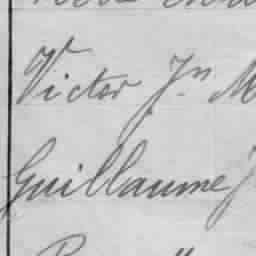 Victor Jn M
Guillaume J